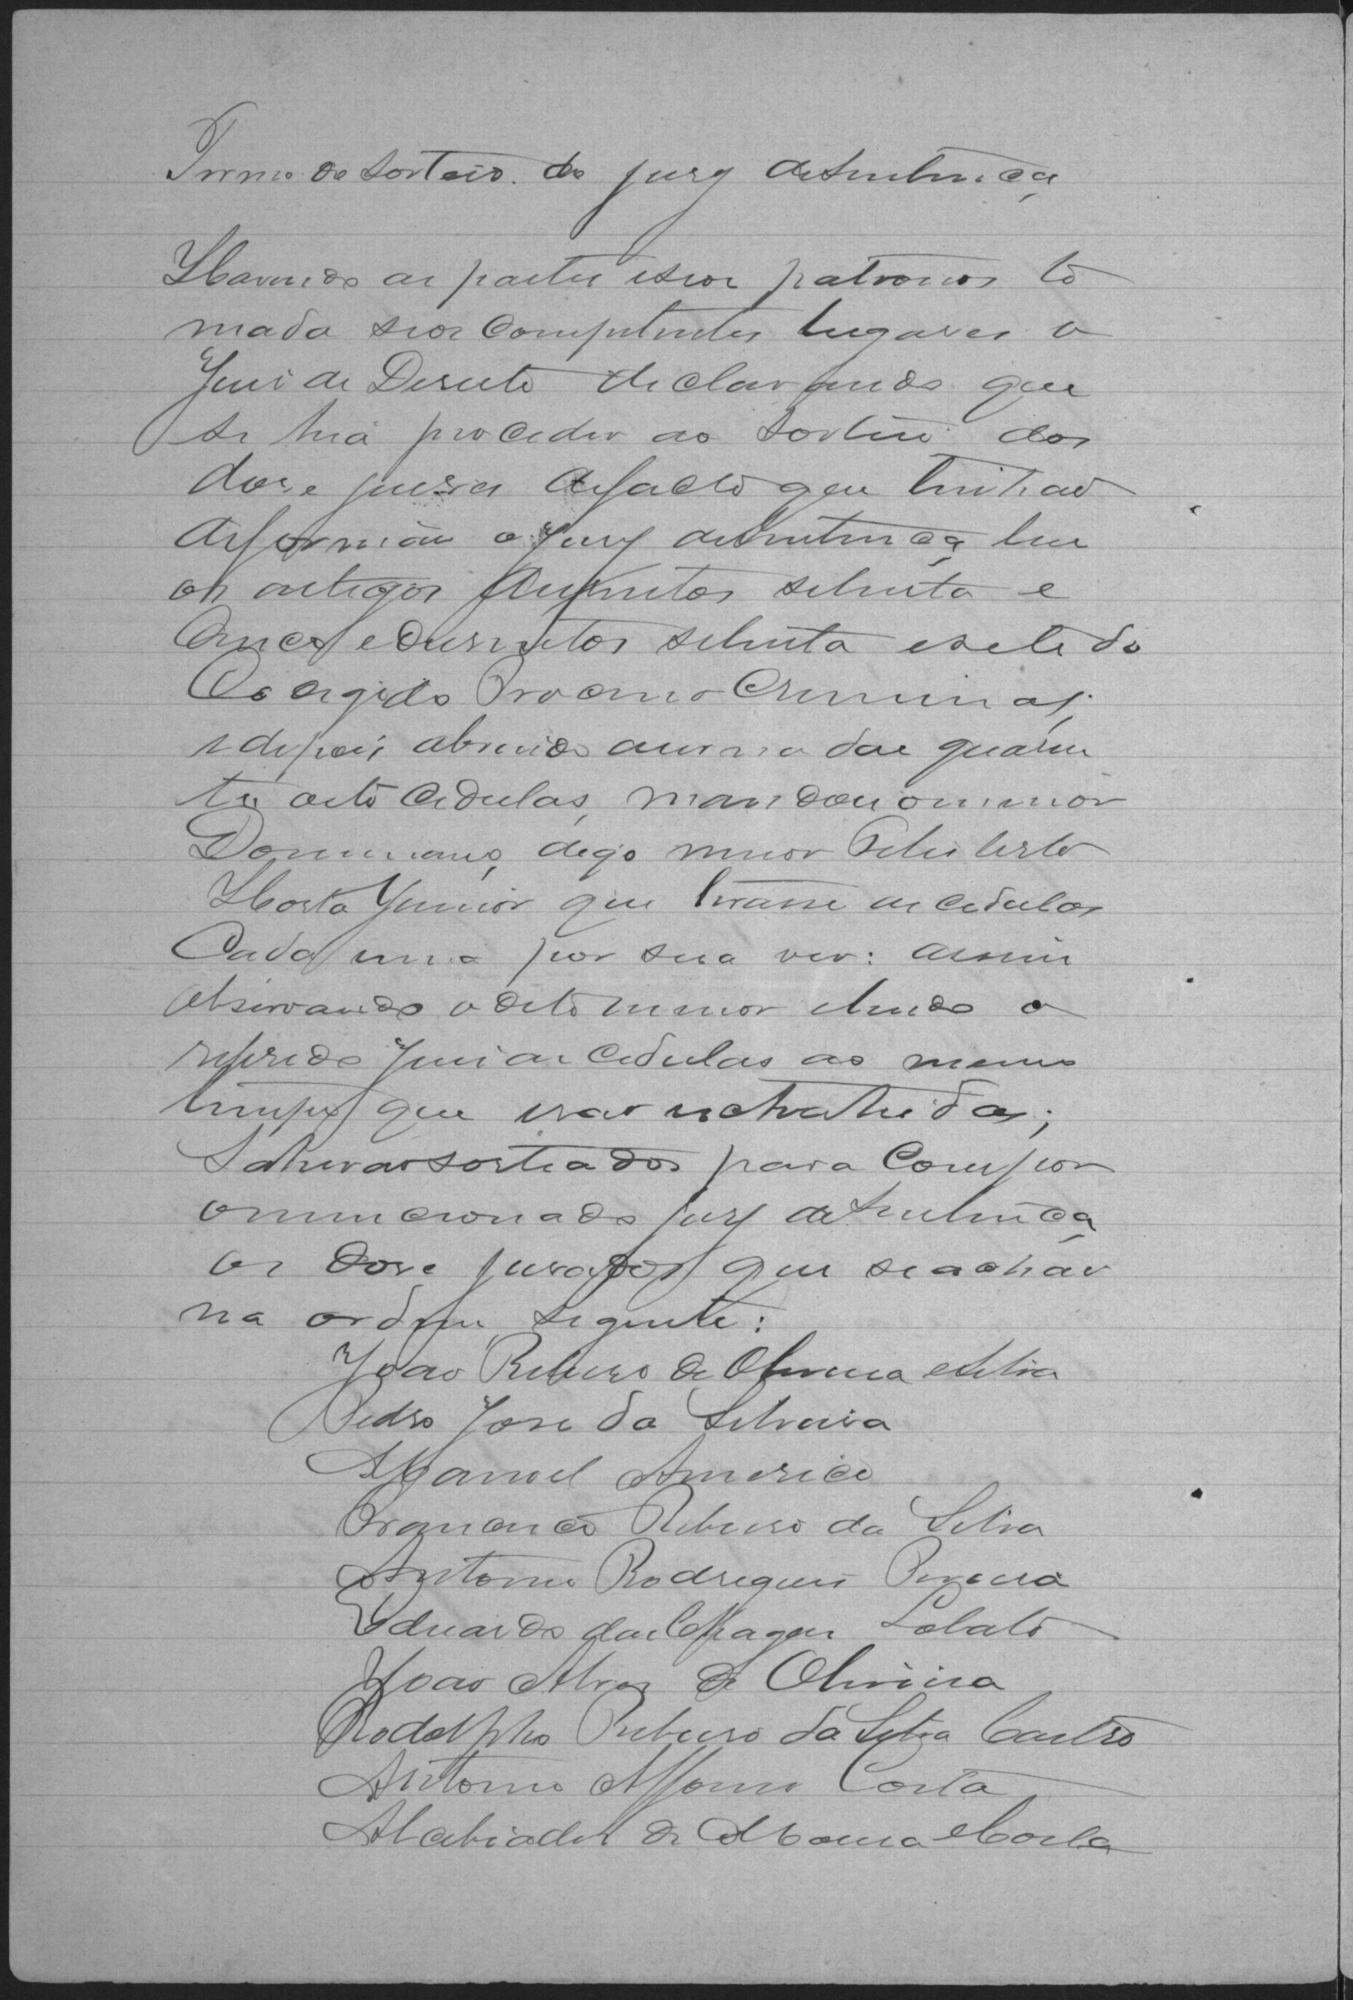 Termo de sorteio do jury de sentença
Havendo as partes e seos patronos to
mado seos competentes lugares o
Juis de Direito declarando que
se hia proceder ao sorteio dos
dose juises de facto que tinhão
de formar o jury de sentença leu
os artigos dusentos setenta e
cinco e dusentos setenta e sete do
Codigo do Processo Criminal,
e depois abrindo a urna das quaren
ta oito cedulas, mandou o menor
digo menor Feliberto
Horta Junior que tirasse as cedulas
cada uma por sua vez: assim
observando o dito menor e lendo o
referido Juis as cedulas ao mesmo
tempo que erão extrahidas;
sahirão sorteados para compor
o mencionado jury de sentença
os dose jurados que se achão
na ordem seguinte:
João Ribeiro de Oliveira e Silva
Pedro Jose da Silveira
Manoel Americo
Francisco Ribeiro da Silva
Antonio Rodrigues Pereira
Eduardo das Chagas Lobato
João Alves de Oliveira
Rodolpho Ribeiro da Silva Castro
Antonio Affonso Costa
Alcebiades de Moura e Costa